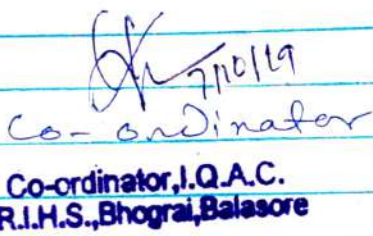 7/10/19
Co-ordinator
Co-ordinator,I.Q.A.C.
R.I.H.S.,Bhograi,Balasore